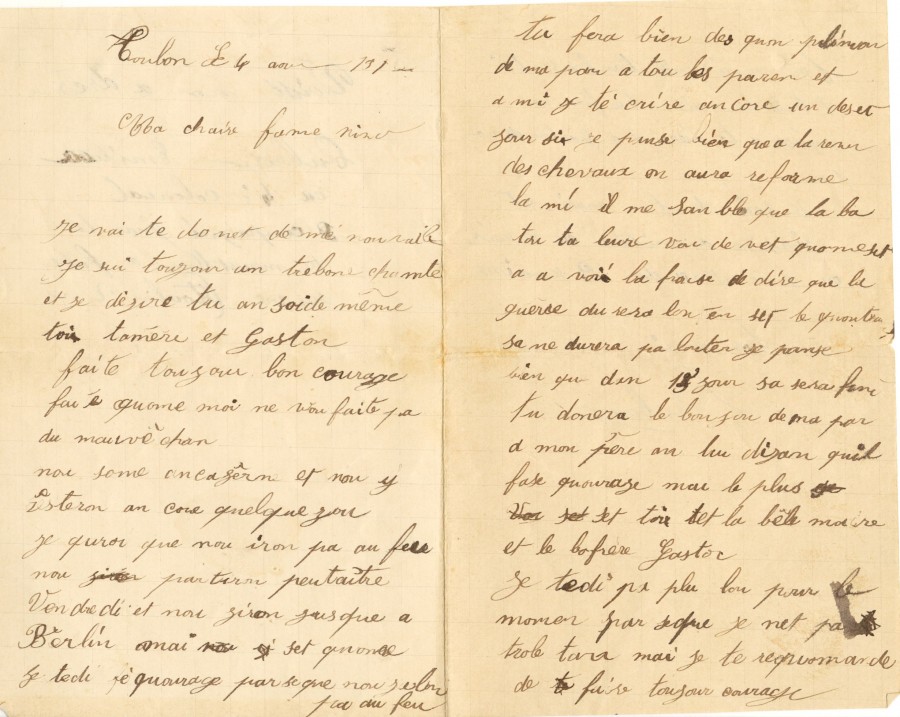 Toulon Le 4 aou 191
Ma chaire fame nino
Je vai te donet dé mé nouvaile
Je sui touzour an trebone chante
et je désire tu an soide même
toir tamére et Gaston
faite touzour bon courage
faite quome moi ne vou faite pa
du mauvéchan
nou some ancazêrn et nou y
resteron an core quelque zou
je quroi que nou iron pa au feu
nou partiron peutaître
Vendredi et nou ziron jusque a
Berlin mai si set quome
je tedi é quourage parseque nou zalon
pa au feu
tu fera bien des quon plimon
de ma par a tou les paren et
ami je té crire ancore un deset
jour sir je panse bien que a la
des chevaux on aura reforme
la mi il me sanble que la ba
tou ta leure vai de vet quomeset
a a voir la frase de dire que la
guerse du sera lon en set le quontre
sa ne durera pa lonten je panse
bien qu dan 15 zour sa sera fini
tu donera le bonzou de ma par
a mon père an lui disan quil
fase quourage mai le plus
set toir et la bêle maire
et le bofrère Gaston
Je tedi pa plu lon pour le
momen parseque je net pa
trole tan mai je te requomande
de faise touzour courage